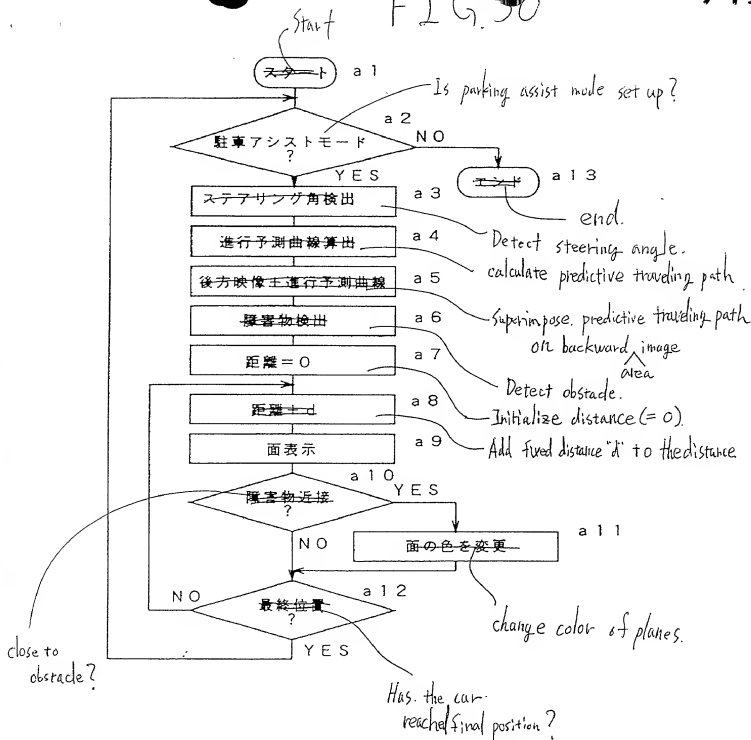 FIG. 30
Start
スタート a1
Is parking assist mode set up?
a2
駐車アシストモード
?
NO
YES
エンド a13
end.
ステアリング角検出 a3
Detect steering angle.
進行予測曲線算出 a4
calculate predictive traveling path
後方映像+進行予測曲線 a5
Superimpose predictive traveling path
on backward image
area
障害物検出 a6
Detect obstacle.
距離=0 a7
Initialize distance (=0).
距離+d a8
Add fixed distance "d" to the distance
面表示 a9
a10
障害物近接
?
YES
NO
a11
面の色を変更
change color of planes.
a12
最終位置
?
NO
YES
close to
obstacle?
Has the car
reached final position?